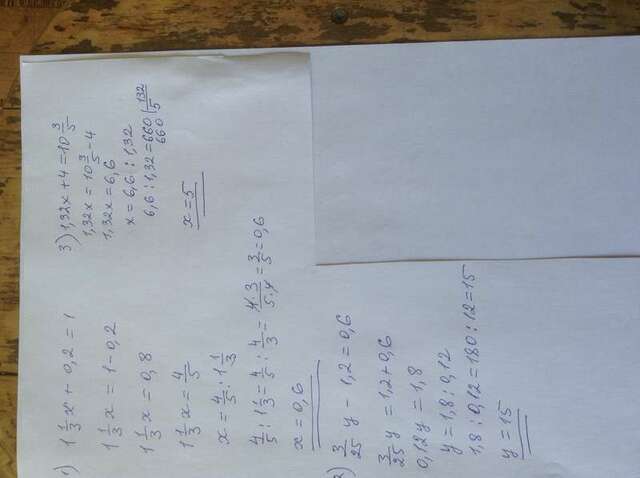 1) 1 1/3 x + 0,2 = 1
1 1/3 x = 1 - 0,2
1 1/3 x = 0,8
1 1/3 x = 4/5
x = 4/5 : 1 1/3
4/5 : 1 1/3 = 4/5 : 4/3 = 4·3/5·4 = 3/5 = 0,6
x = 0,6
2) 3/25 y - 1,2 = 0,6
3/25 y = 1,2 + 0,6
0,12y = 1,8
y = 1,8 : 0,12
1,8 : 0,12 = 180 : 12 = 15
y = 15
3) 1,32x + 4 = 10 3/5
1,32x = 10 3/5 - 4
1,32x = 6,6
x = 6,6 : 1,32
6,6 : 1,32 = 660 | 132
660 5
x = 5